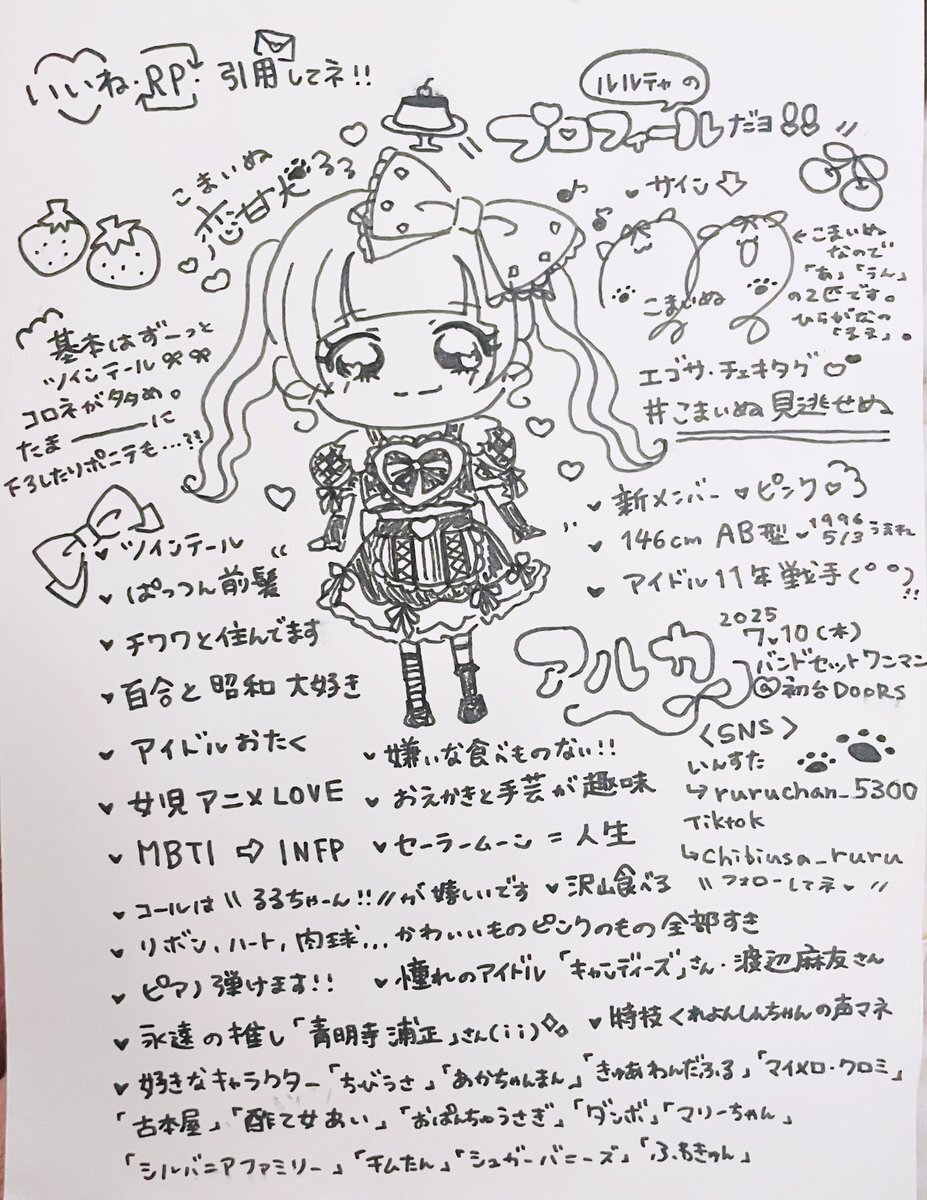 いいね・RP・引用してネ!!
ルルテャの
プロフィールだヨ!!
こまいぬ
恋甘犬るる
♥サイン⇩
こまいぬ
←こまいぬ
なので
「あ」「うん」
の2匹です。
ひらがなの
「るる」。
エゴサ・チェキタグ♡
#こまいぬ見逃せぬ
基本はずーっと
ツインテール
コロネが多め。
たまーーーに
下ろしたりポニテも…??
♥新メンバー♥ピンク♡
♥146cm AB型♥1996 5/3うまれ
♥アイドル11年戦手(°°)!!
アルカ
2025
7.10(木)
バンドセットワンマン
@初台DOORS
♥ツインテール
♥ぱっつん前髪
♥チワワと住んでます
♥百合と昭和大好き
♥アイドルおたく
♥嫌いな食べものない!!
♥女児アニメLOVE
♥おえかきと手芸が趣味
♥MBTI⇨INFP
♥セーラームーン=人生
<SNS>
いんすた
↳ruruchan_5300
Tiktok
↳chibiusa_ruru
\\フォローしてネ♥//
♥コールは\\るるちゃーん!!//が嬉しいです
♥沢山食べる
♥リボン、ハート、肉球...かわいいものピンクのもの全部すき
♥ピアノ弾けます!!
♥憧れのアイドル「キャンディーズ」さん・渡辺麻友さん
♥永遠の推し「青明寺浦正」さん(ii)
♥特技くれよんしんちゃんの声マネ
♥好きなキャラクター「ちびうさ」「あかちゃんまん」「きゅあわんだふる」「マイメロ・クロミ」
「古本屋」「酢て女あい」「おぱんちゅうさぎ」「ダンボ」「マリーちゃん」
「シルバニアファミリー」「チムたん」「シュガーバニーズ」「ふもきゅん」